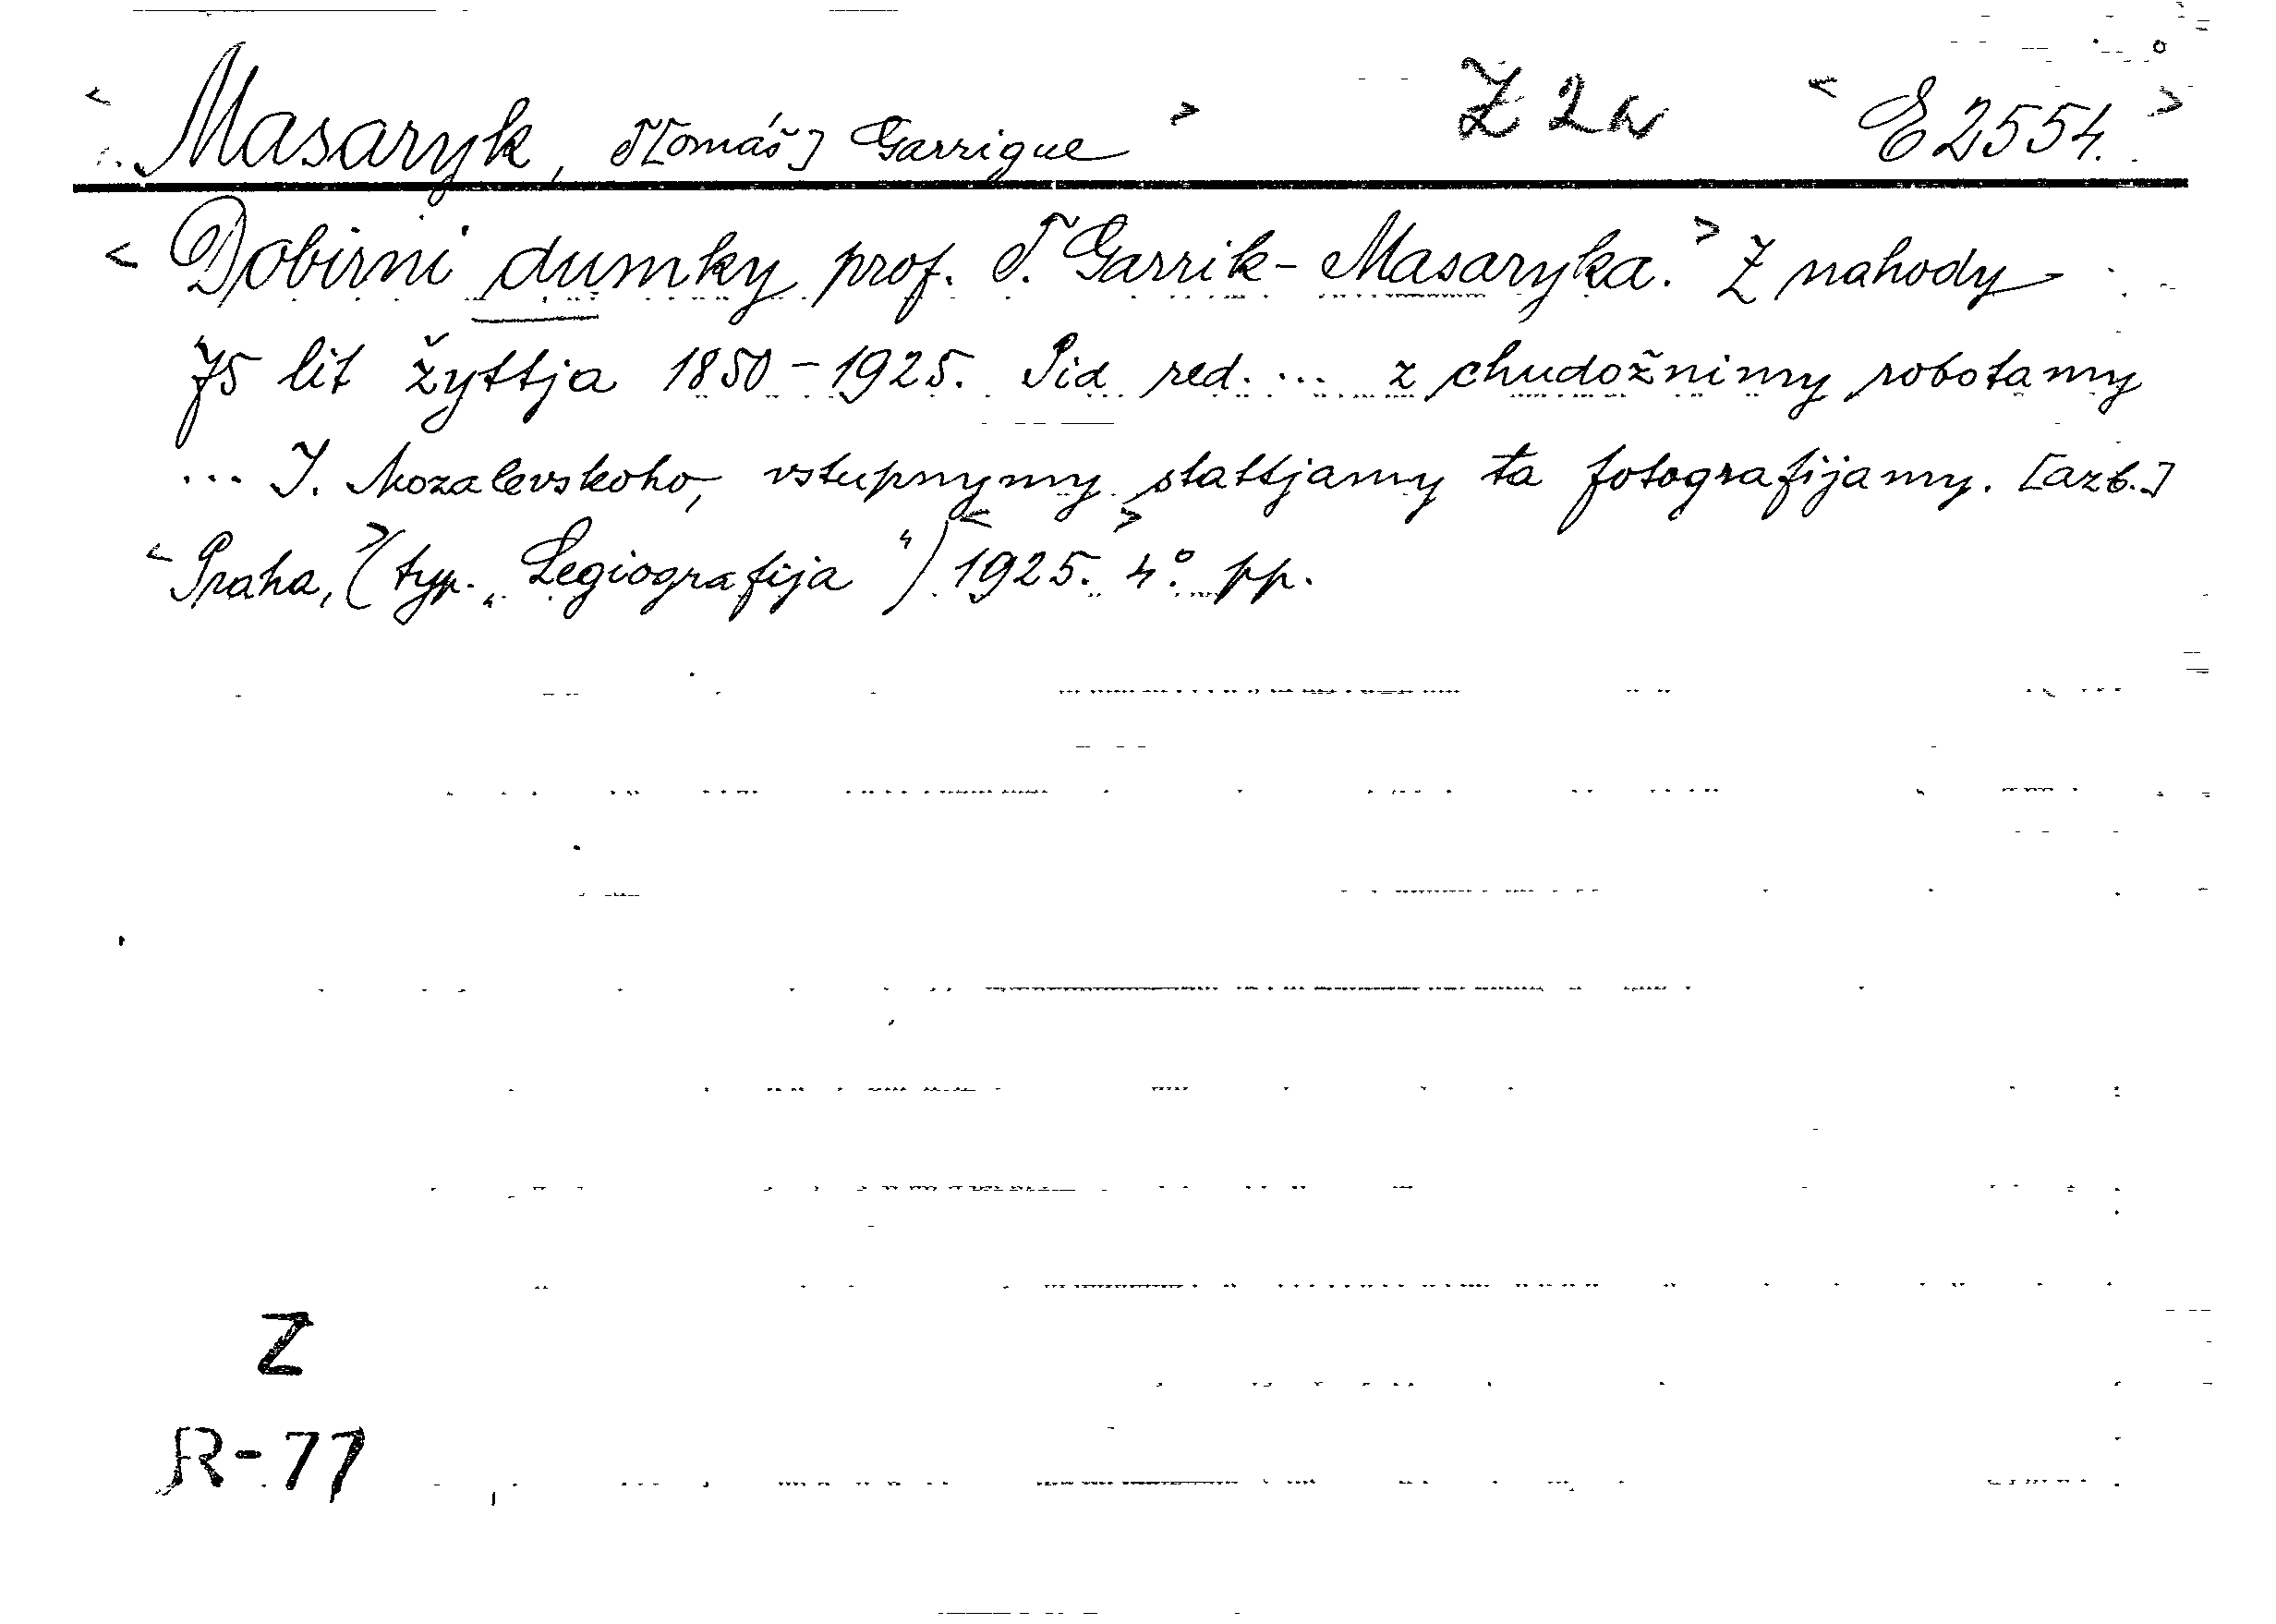 < Masaryk, T[omáš] Garrigue > Z 2a < E 2554. >
< Dobirni dumky prof. T. Garrik-Masaryka. > Z nahody
75 lit žyttja 1850-1925. Pid red. ... z chudožnimy robotamy
... I. Mozalevskoho, vstupnymy stattjamy ta fotografijamy. [azb.]
< Praha, > (typ. „Legiografija") < 1925. > 4° pp.
Z
R-77